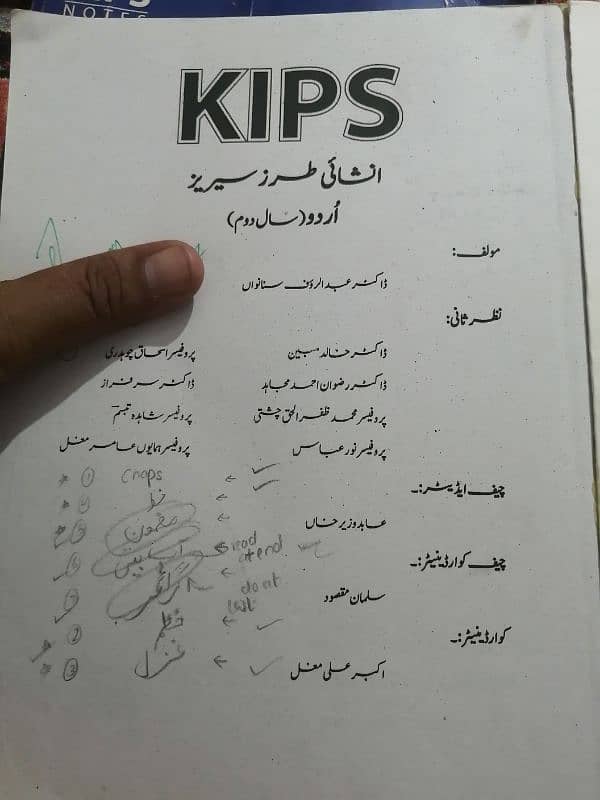 NOTES
KIPS
انشائی طرز سیریز
اُردو (سال دوم)
مولف:
ڈاکٹر عبدالرؤف سنانواں
نظر ثانی:
ڈاکٹر خالد مبین پروفیسر اسحاق چوہدری
ڈاکٹر رضوان احمد مجاہد ڈاکٹر سرفراز
پروفیسر محمد ظفر الحق چشتی پروفیسر شاہدہ تبسم
پروفیسر نور عباس پروفیسر ہمایوں عامر مغل
① Chaps
چیف ایڈیٹر:۔
خط
عابد وزیر خاں
مضمون
چیف کوارڈینیٹر:۔
read
at end
سلمان مقصود
dont
کوارڈینیٹر:۔
② نظم
③ غزل
اکبر علی مغل